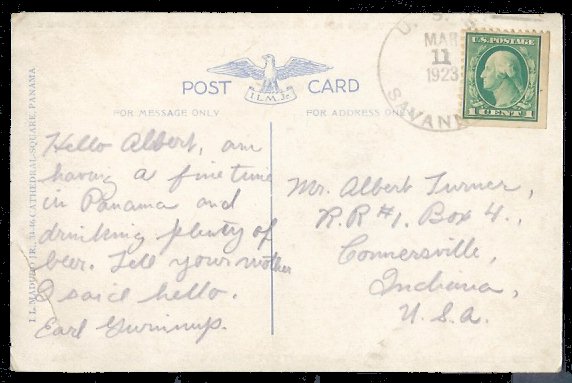 U. S. S.
MAR
11
1923
SAVANN
U.S. POSTAGE
1 CENT 1
POST CARD
I.L.M.Jr.
FOR MESSAGE ONLY
FOR ADDRESS ONLY
I. L. MADURO JR., CATHEDRAL-SQUARE, PANAMA
Hello Albert, am
having a fine time
in Panama and
drinking plenty of
beer. Tell your mother
I said hello.
Earl
Mr. Albert Turner,
R.R #1. Box 4.,
Connersville,
Indiana,
U.S.A.